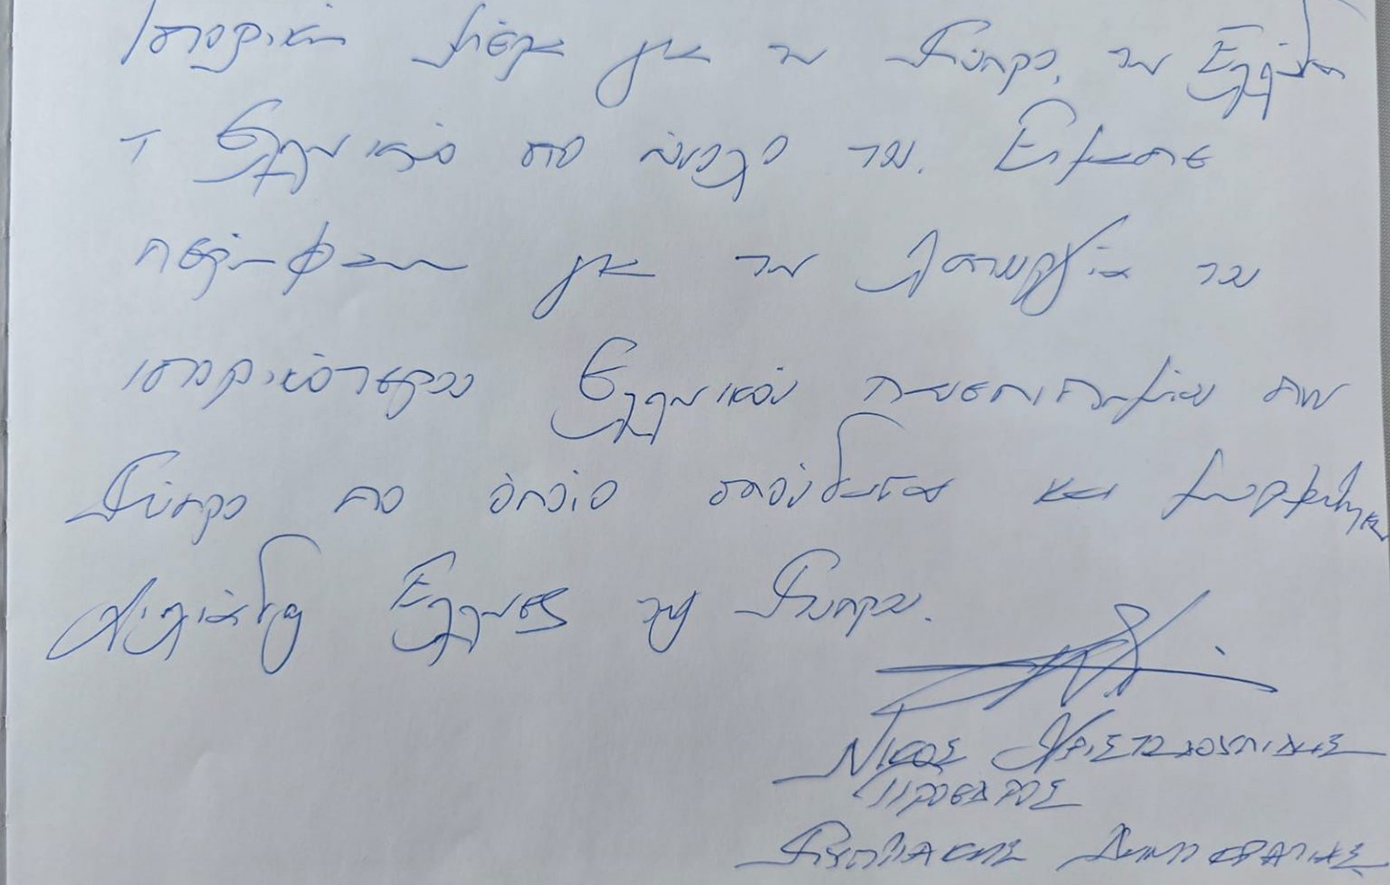 Ιστορική μέρα για την Κύπρο, την Ελλάδα
τ Ελληνισμό στο σύνολο του. Είμαστε
περήφανοι για την λειτουργία του
ιστορικότερου Ελληνικού πανεπιστημίου στην
Κύπρο στο όποιο σπούδασαν και μορφώθηκαν
χιλιάδες Έλληνες της Κύπρου.
ΝΙΚΟΣ ΧΡΙΣΤΟΔΟΥΛΙΔΗΣ
ΠΡΟΕΔΡΟΣ
ΚΥΠΡΙΑΚΗΣ ΔΗΜΟΚΡΑΤΙΑΣ